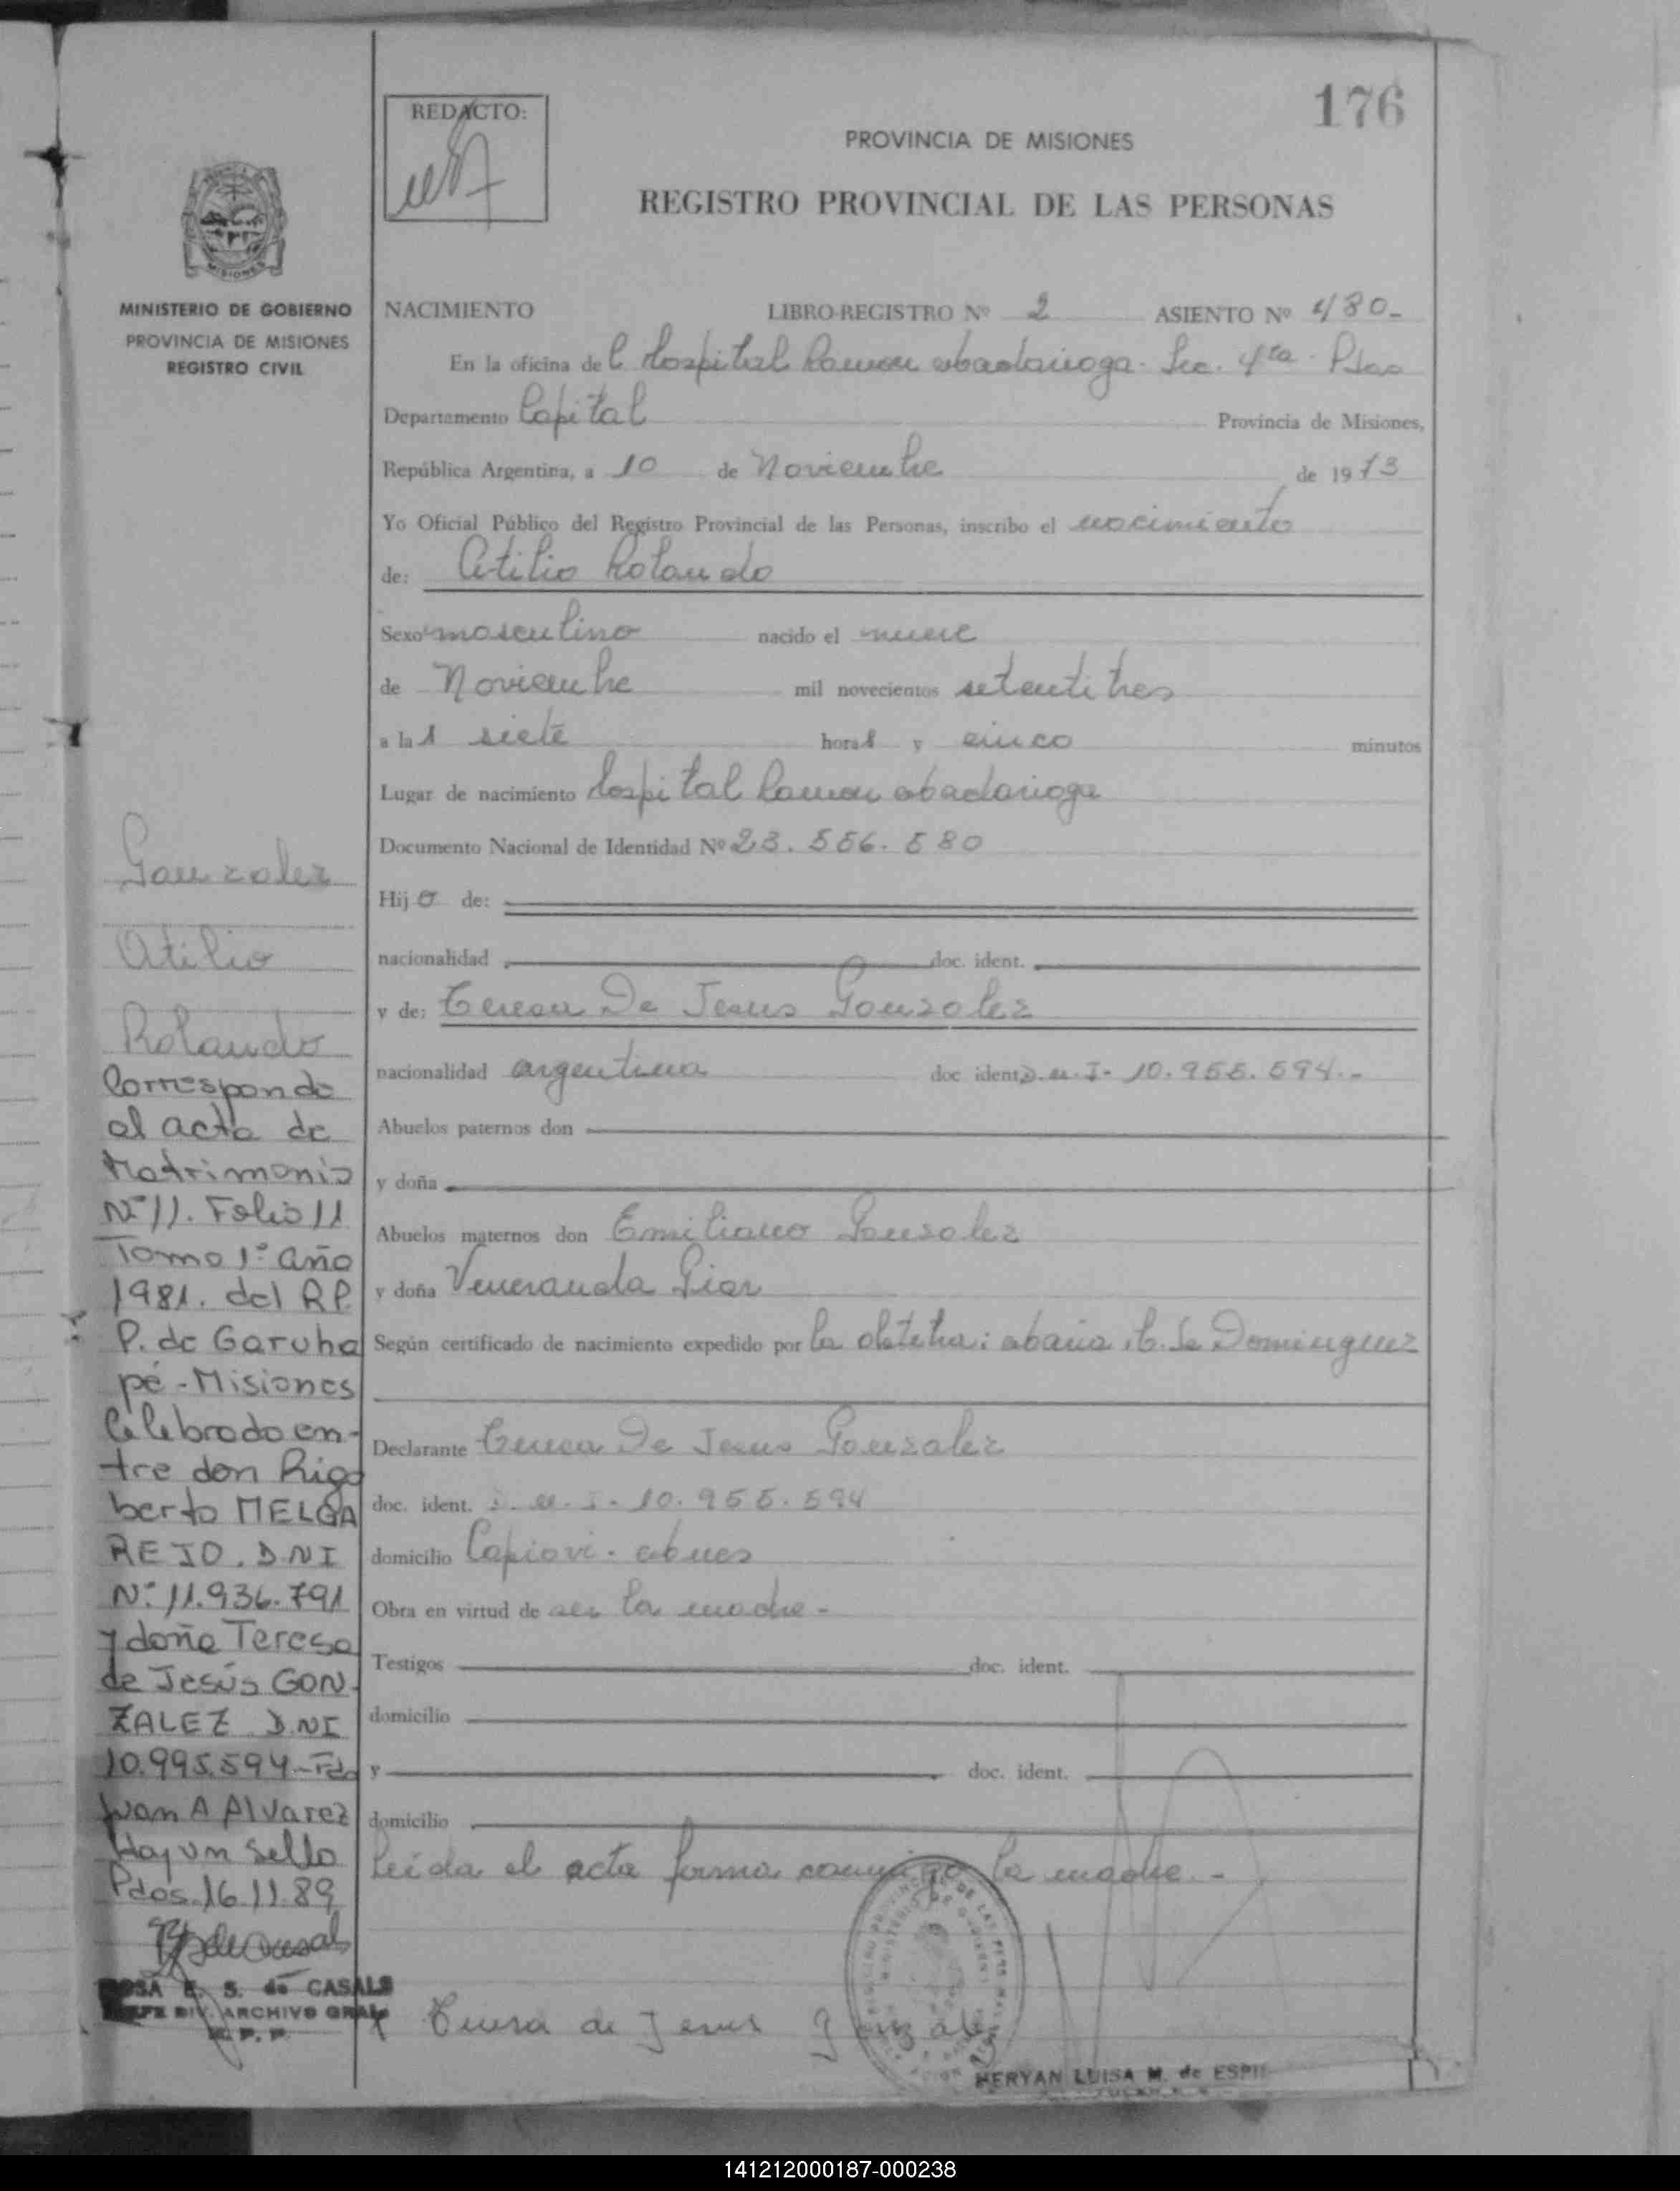 176
REDACTO:
PROVINCIA DE MISIONES
REGISTRO PROVINCIAL DE LAS PERSONAS
MISIONES
MINISTERIO DE GOBIERNO
PROVINCIA DE MISIONES
REGISTRO CIVIL
NACIMIENTO LIBRO-REGISTRO Nº 2 ASIENTO Nº 480-
En la oficina de Hospital Ramon Madariaga. Sec. 4ta. Pdas
Departamento Capital Provincia de Misiones,
República Argentina, a 10 de Noviembre de 1973
Yo Oficial Público del Registro Provincial de las Personas, inscribo el nacimiento
de: Atilio Rolando
Sexo masculino nacido el nueve
de Noviembre mil novecientos setentitres
a las siete horas y cinco minutos
Lugar de nacimiento Hospital Ramon Madariaga
Documento Nacional de Identidad Nº 23.556.580
Hijo de:
nacionalidad doc. ident.
y de: Teresa De Jesus Gonzalez
nacionalidad argentina doc ident D.N.I- 10.955.594.-
Abuelos paternos don
y doña
Abuelos maternos don Emiliano Gonzalez
y doña Veneranda
Según certificado de nacimiento expedido por la obstetra: Maria de Dominguez
Declarante Teresa De Jesus Gonzalez
doc. ident. D.N.I- 10.955.594
domicilio Capiovi - Mnes
Obra en virtud de ser la madre -
Testigos doc. ident.
domicilio
y doc. ident.
domicilio
Leida el acta firma conmigo la madre. -
Teresa de Jesus Gonzalez
HERYAN LUISA M. de ESPI
Gonzalez
Atilio
Rolando
Corresponde
al acta de
Matrimonio
Nº 11. Folio 11
Tomo 1º año
1981. del R.P.
P. de Garuha
pé - Misiones
Celebrado en-
tre don Rigo
berto MELGA
REJO. D.N.I
Nº 11.936.791
y doña Teresa
de Jesús GON-
ZALEZ D.NI
10.995.594 - Fdo
Juan A Alvarez
Hay un sello
Pdas. 16.11.89
ROSA E. S. de CASALS
JEFE DIV. ARCHIVO GRAL
R. P. P.
141212000187-000238